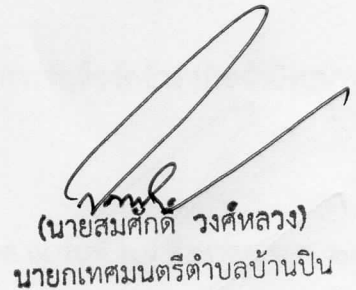 (นายสมศักดิ์ วงศ์หลวง)
นายกเทศมนตรีตำบลบ้านปิน